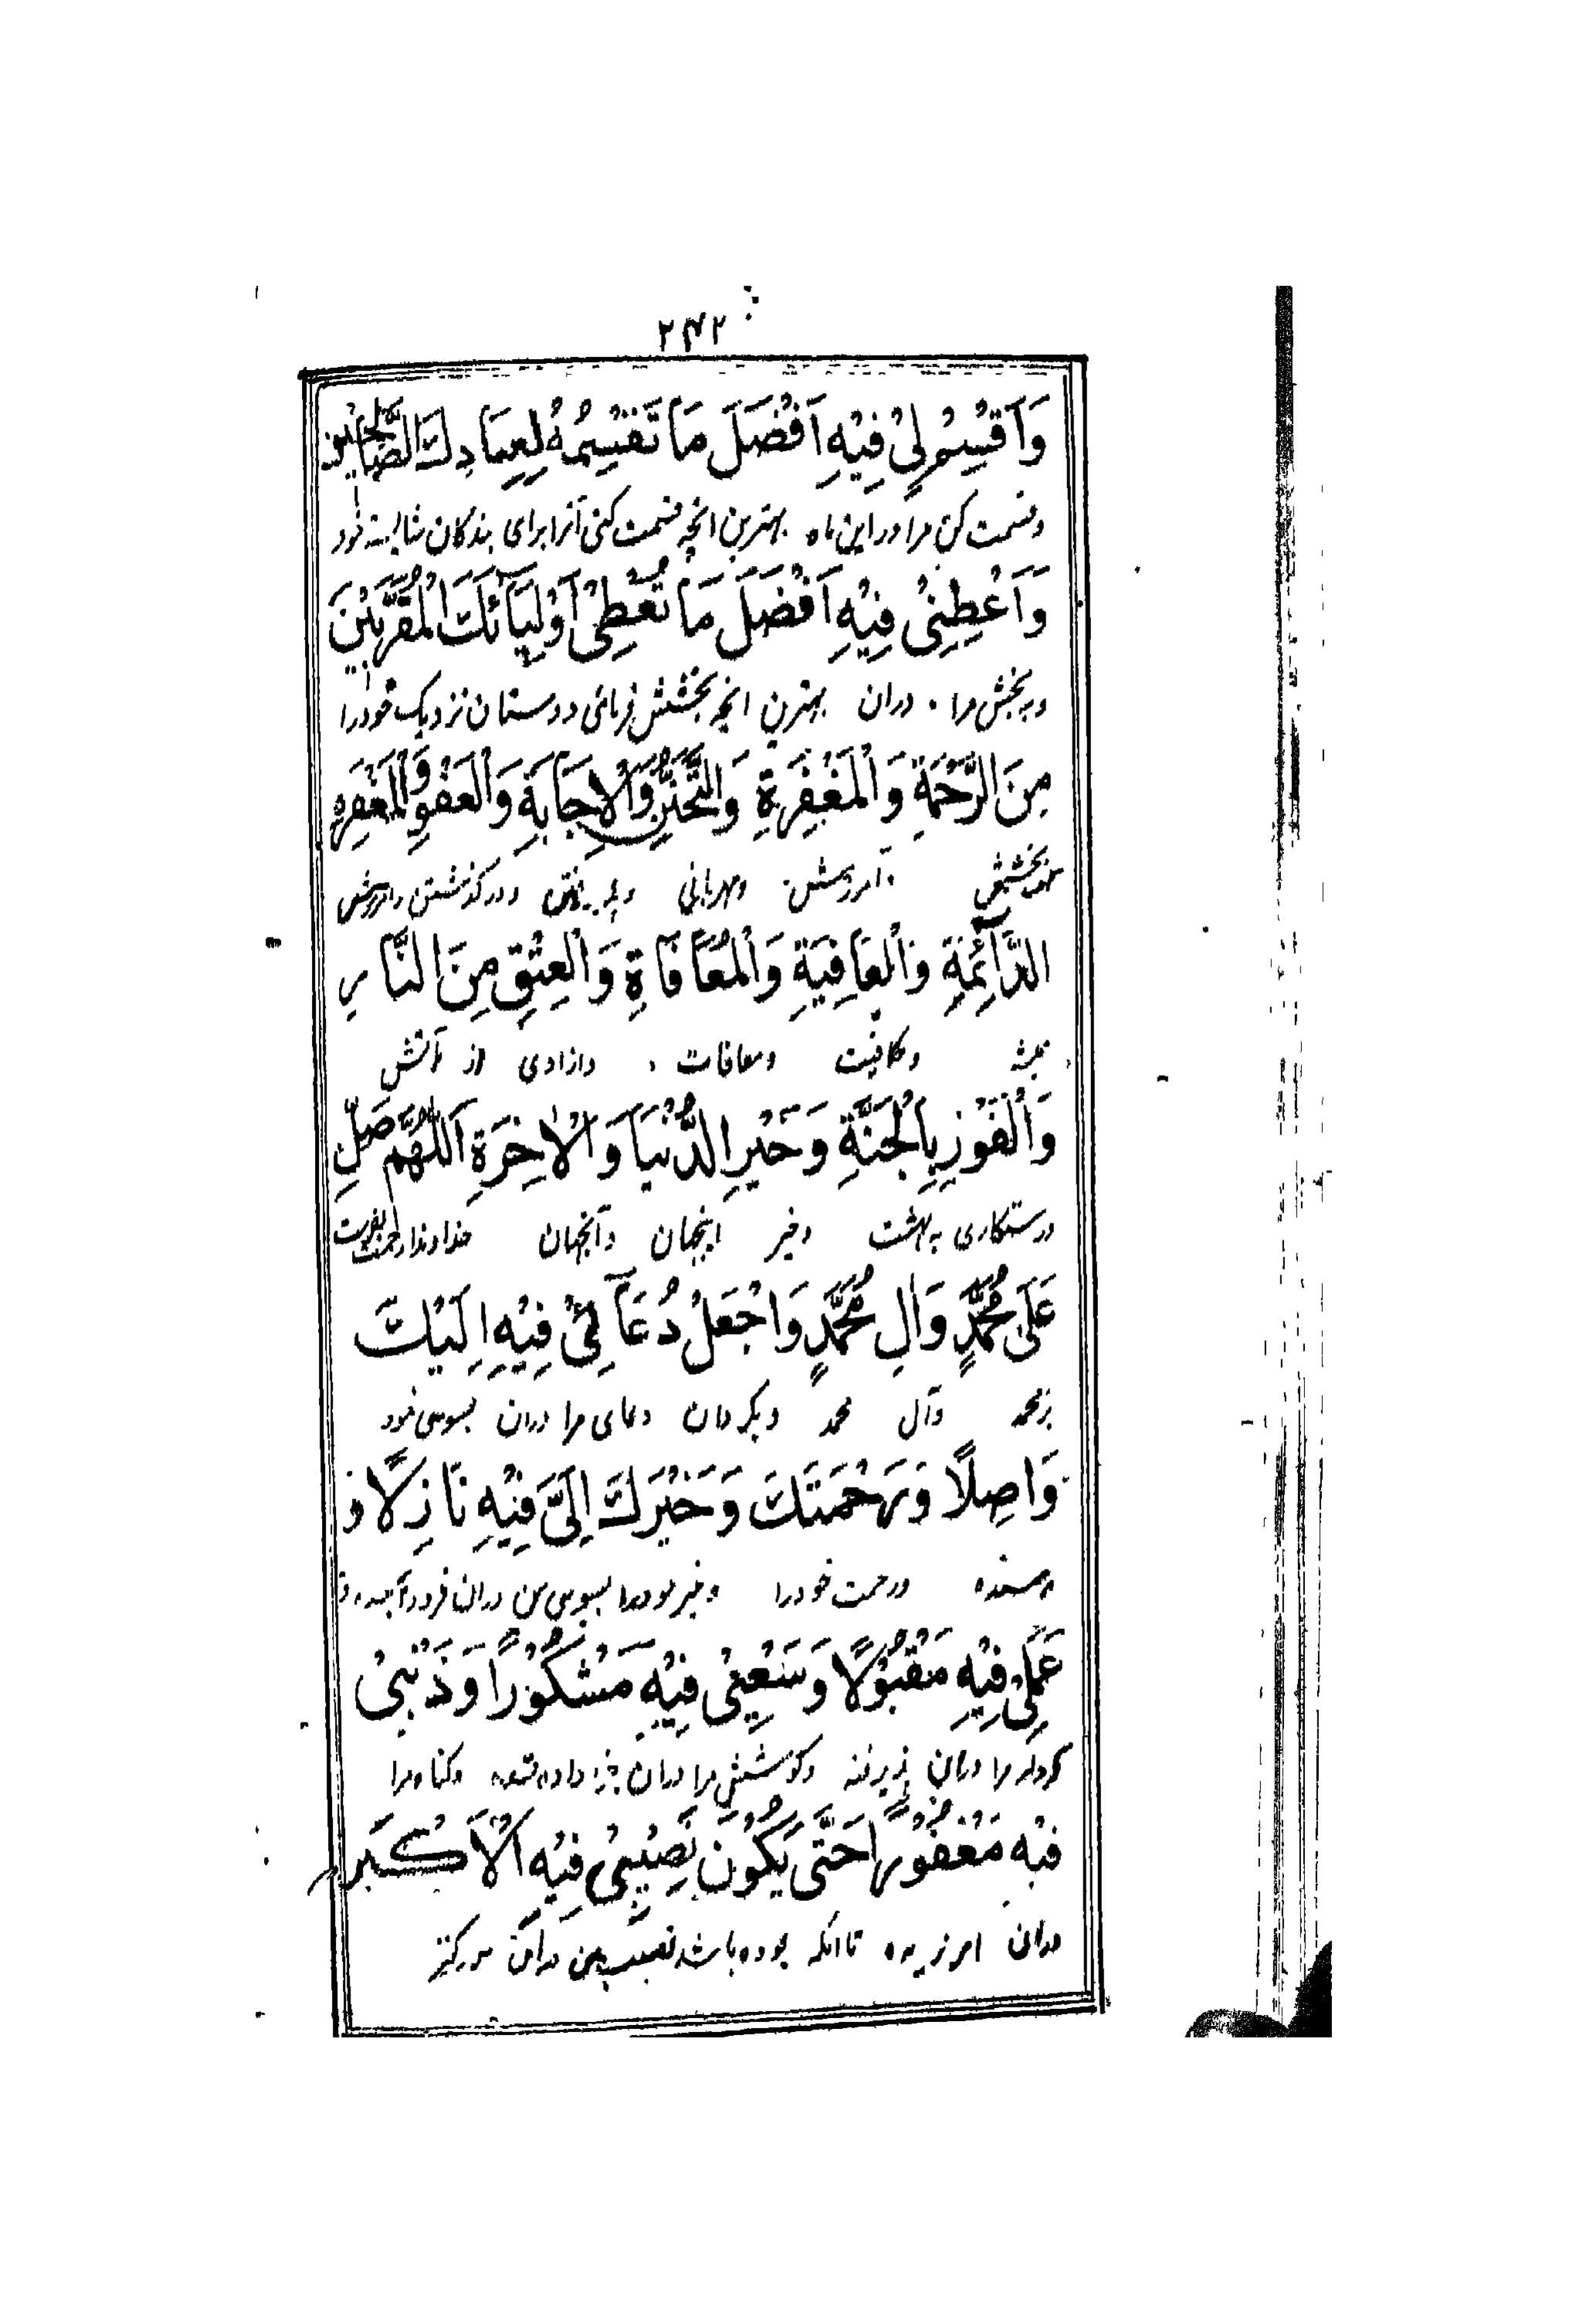 ۲۴۲
وَاَقْسِمْ لِیْ فِیْهِ اَفْضَلَ مَا تَقْسِمُهُ لِعِبَادِكَ الصَّالِحِیْنَ
وقسمت کن مرا در این ماه بهترین انچه قسمت کنی آنرا برای بندگان شایسته خود
وَاَعْطِنِیْ فِیْهِ اَفْضَلَ مَا تُعْطِیْ اَوْلِیَآئَكَ الْمُقَرَّبِیْنَ
وبه بخش مرا دران بهترین انچه بخشش فرمائی دوستان نزدیک خودرا
مِنَ الرَّحْمَةِ وَالْمَغْفِرَةِ وَالتَّحَنُّنِ وَالْاِجَابَةِ وَالْعَفْوِ وَالْمَغْفِرَةِ
بخشش آمرزش ومهربانی ودر گذشتن
الدَّآئِمَةِ وَالْعَافِیَةِ وَالْمُعَافَاةِ وَالْعِتْقِ مِنَ النَّارِ
همیشه وعافیت ومعافات وازادی از آتش
وَالْفَوْزِ بِالْجَنَّةِ وَخَیْرِ الدُّنْیَا وَالْاٰخِرَةِ اَللّٰهُمَّ صَلِّ
ورستکاری به بهشت وخیر اینجهان وآنجهان خداوندا رحمت
عَلٰی مُحَمَّدٍ وَاٰلِ مُحَمَّدٍ وَاجْعَلْ دُعَآئِیْ فِیْهِ اِلَیْكَ
بر محمد وآل محمد وبگردان دعای مرا دران بسوی خود
وَاصِلًا وَرَحْمَتَكَ وَخَیْرَكَ اِلَیَّ فِیْهِ نَازِلًا وَ
رسنده ورحمت خودرا وخیر خودرا بسوی من دران فرود آینده و
عَمَلِیْ فِیْهِ مَقْبُوْلًا وَسَعْیِیْ فِیْهِ مَشْکُوْرًا وَذَنْبِیْ
کردار مرا دران پذیرفته وکوشش مرا دران جزا داده شده وگناه مرا
فِیْهِ مَغْفُوْرًا حَتّٰی یَکُوْنَ نَصِیْبِیْ فِیْهِ الْاَکْبَرَ
دران امرزیده تا انکه بوده باشد نصیب من دران بزرگتر